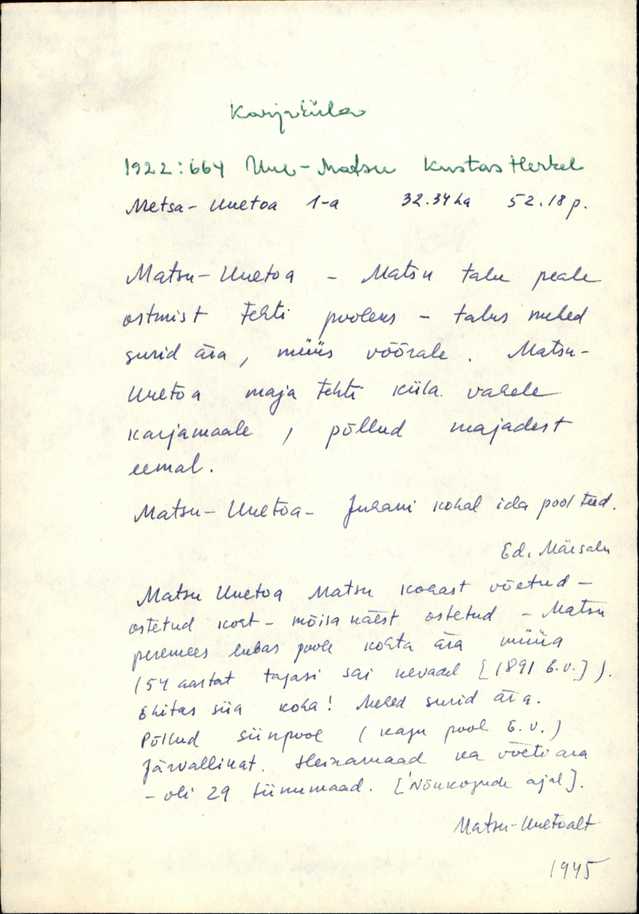 Karjaküla
1922:664 Uue-Matsu Kustas Herkel
Metsa-Uuetoa 1-a 32.34ha 52.18p.
Matsu-Uuetoa - Matsu talu peale
ostmist tehti pooleks - talus mehed
surid ära, müüs võõrale. Matsu-
Uuetoa maja tehti küla vahele
karjamaale, põllud majadest
eemal.
Matsu-Uuetoa- Juhani kohal ida pool teed.
Ed. Mäesalu
Matsu Uuetoa Matsu kohast võetud -
ostetud koht - mõisa käest ostetud - Matsu
peremees lubas poole kohta ära müüa
(54 aastat tagasi sai kevadel [1891 E.V.]).
Ehitas siia koha! Mehed surid ära.
Põllud siinpool (kagu pool E.V.)
Järvallikat. Heinamaad ka võeti ära
- oli 29 tiinumaad. [Nõukogude ajal].
Matsu-Uuetoalt
1945